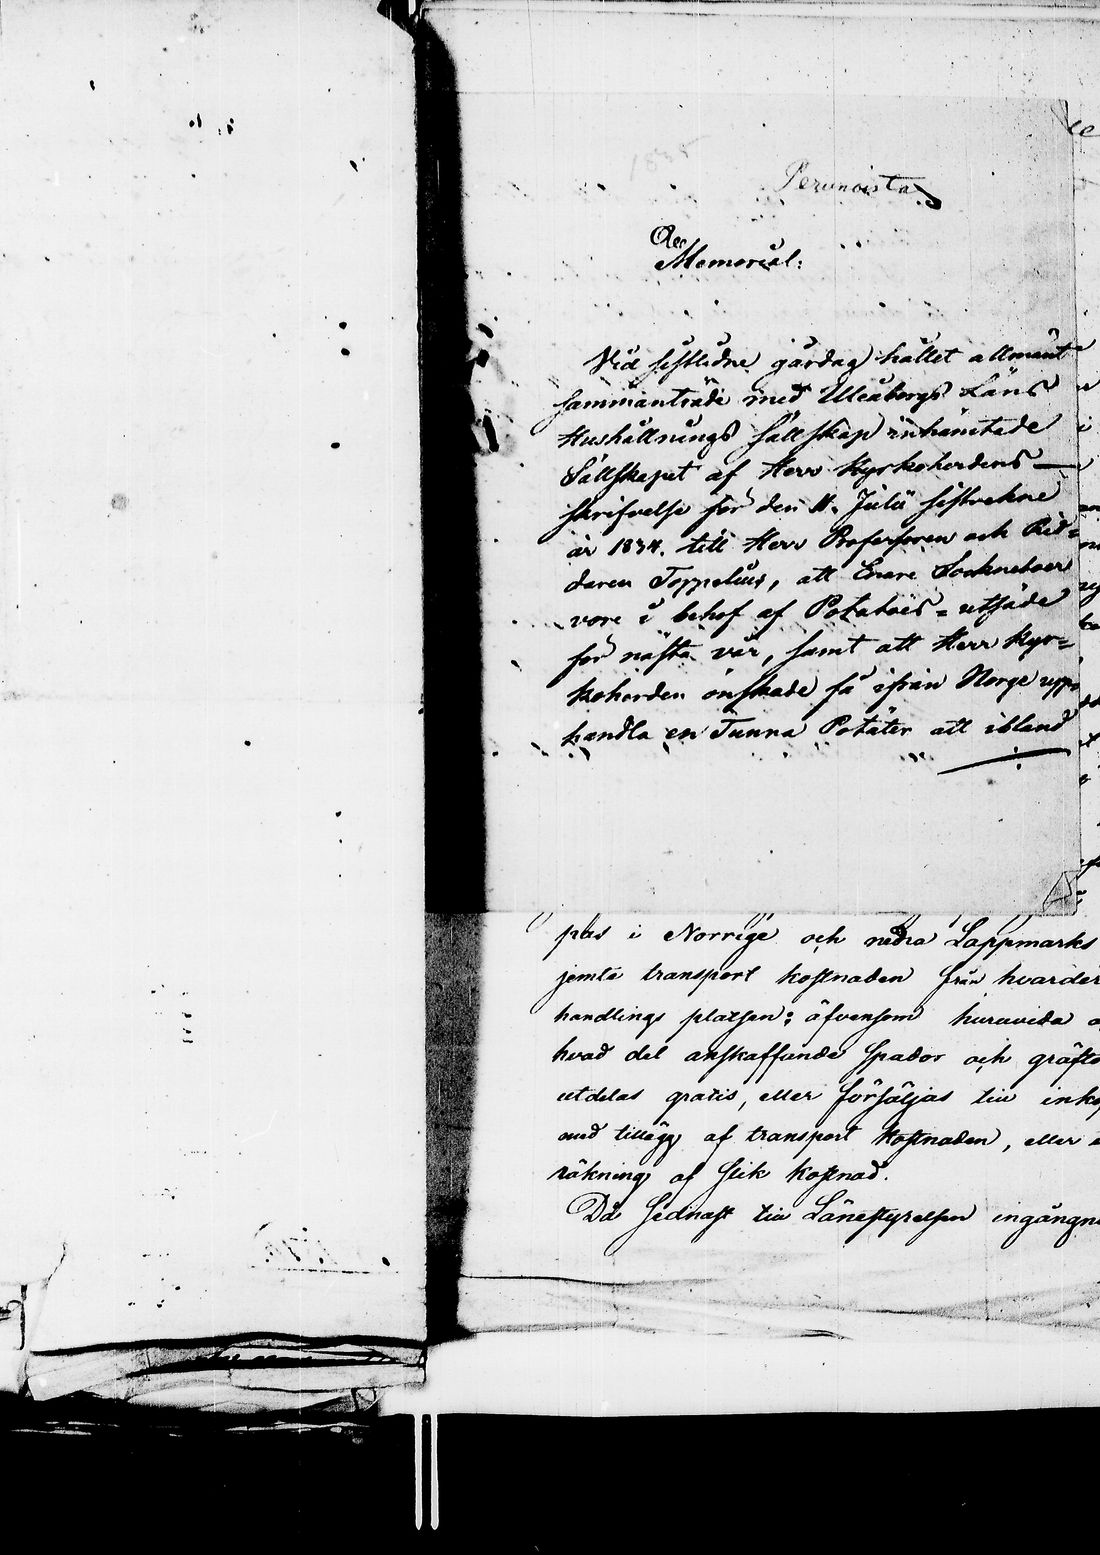 1835
Perunoista
Memorial:
Vid sistledne gårdag hållet allmänt
sammanträde med Uleåborgs Läns
Hushållnings Sällskap inhämtade
Sällskapet af Herr Kyrkoherdens
skrifvelse för den 11. Julii sistvekne
år 1834. till Herr Professoren och Rid=
daren Toppelius, att Enare Sockneboer
vore i behof af Potatoes=utsäde
för nästa vår, samt att Herr Kyr=
koherden önskade få ifrån Norge upp=
handla en Tunna Potäter att ibland
pris i Norrige och nedra Lappmarks
jemte transport kostnaden från hvarder
handlings platsen; äfvensom huruvida
hvad del anskaffande Spador och gräfto
utdelas gratis, eller försäljas till inkö
med tillägg af transport kostnaden, eller
räkning af slik kostnad.
Då sednast till Länestyrelsen ingångne